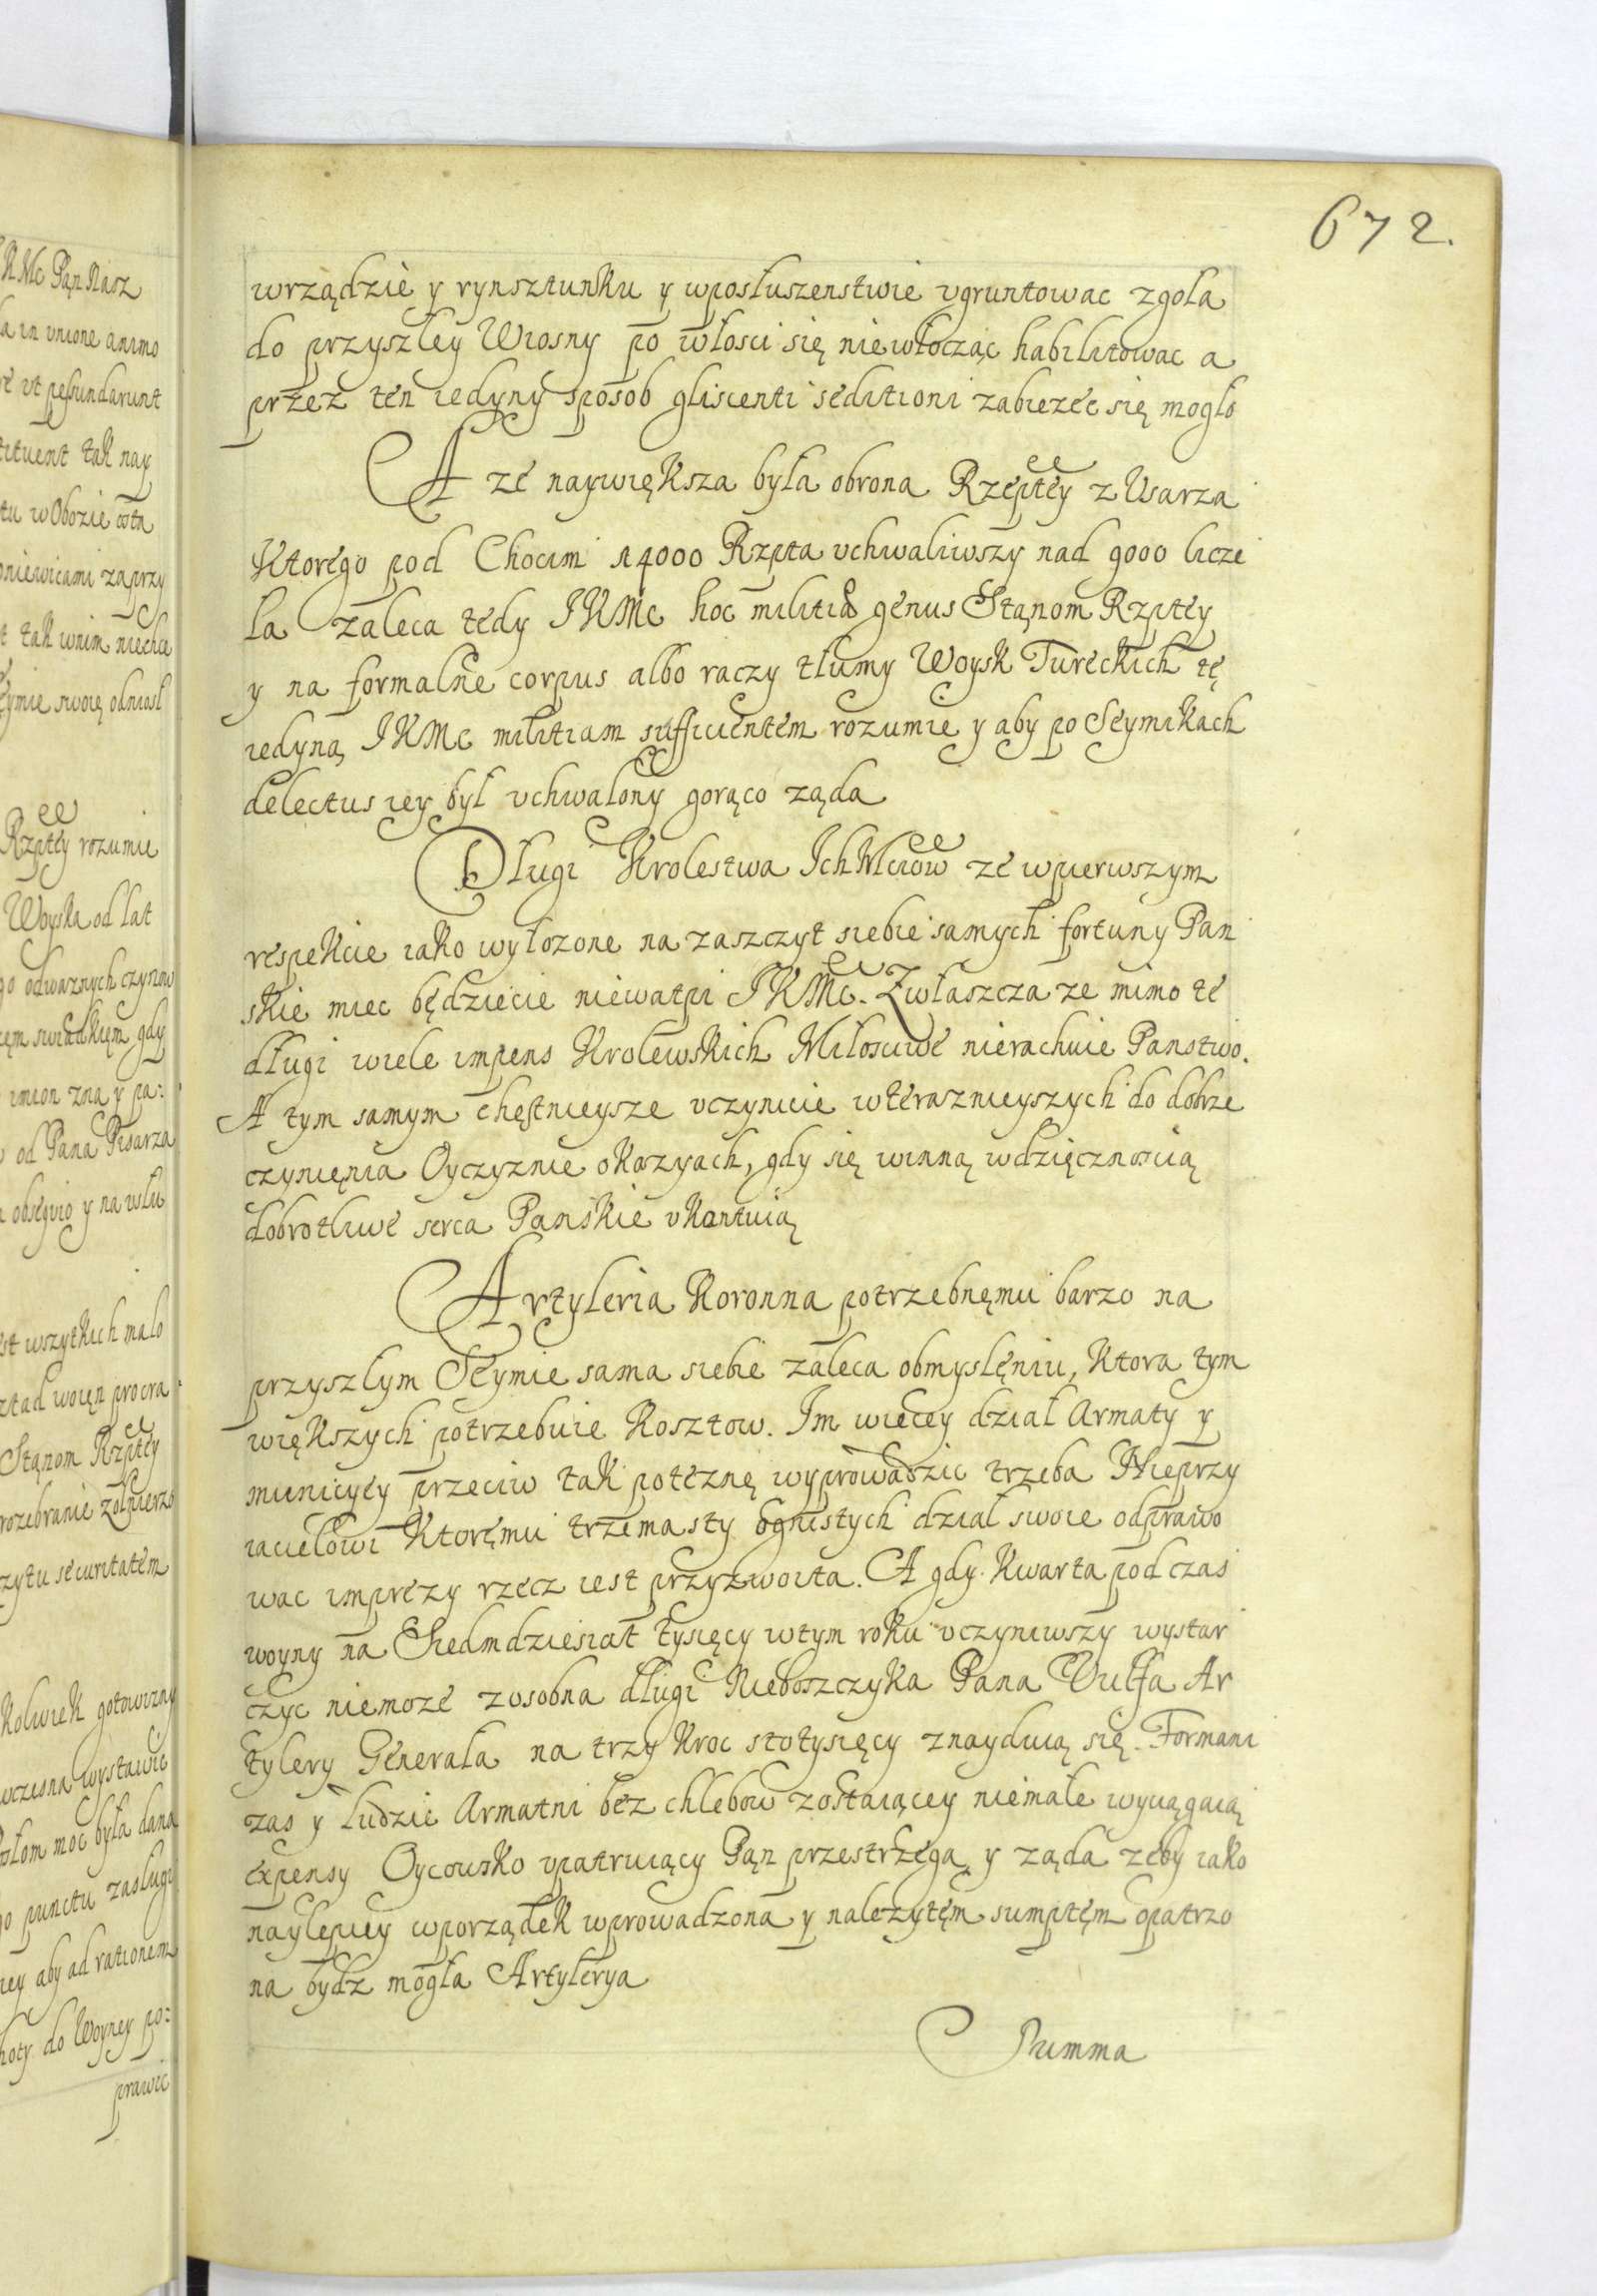 672.
wrządzie y rynsztunku y wposłuszenstwie vgruntowac zgoła
do przyszłey Wiosny po włosci się niewłocząc habilitowac a
przez ten iedyny sposob gliscenti seditioni zabiezec się mogło
A ze naywiększa była obrona Rzeptey z Usarza
Ktorego pod Chocim 14000 Rzpta vchwaliwszy nad 9000 licze
la zaleca tedy JKMc hoc militiæ genus Stąnom Rzptey
y na formalne corpus albo raczy tłumy Woysk Tureckich tę
iedyną JKMc militiam sufficientem rozumie y aby po Seymikach
delectus iey był vchwalony gorąco ząda
Długi Krolestwa IchMciow ze wpierwszym
respekcie iako wyłozone na zaszczyt siebie samych fortuny Pan
skie miec będziecie niewatpi JKMc. Zwłaszcza ze mimo te
długi wiele impens Krolewskich Miłosciwe nierachuie Panstwo.
A tym samym chętnieysze vczynicie wteraznieyszych do dobrze
czynięnia Oyczyznie okazyach, gdy się winną wdzięcznoscią
dobrotliwe serca Panskie vkantuią
Artyleria Koronna potrzebnęmu barzo na
przyszłym Seymie sama siebie zaleca obmyslęniu, Ktora tym
większych potrzebuie Kosztow. Im wiecey dział Armaty y
municyey przeciw tak potęznę wyprowadzic trzeba Nieprzy
iacielowi Ktoręmu trzemasty ognistych dział swoie odprawo
wac imprezy rzecz iest przyzwoita. A gdy Kwarta podczas
woyny na Siedmdziesiat tysięcy wtym roku vczyniwszy wystar
czyc niemoze zosobna długi Nieboszczyka Pana Vulfa Ar
tylery Generała na trzy kroc stotysięcy znayduią się. Formani
zas y ludzie Armatni bez chlebow zostaiącey niemałe wyciągaią
expensy Oycowsko vpatruiący Pąn przestrzega y ząda zeby iako
naylepiey wporządek wprowadzona y nalezytęm sumptęm opatrzo
na bydz mogła Artylerya
Summa